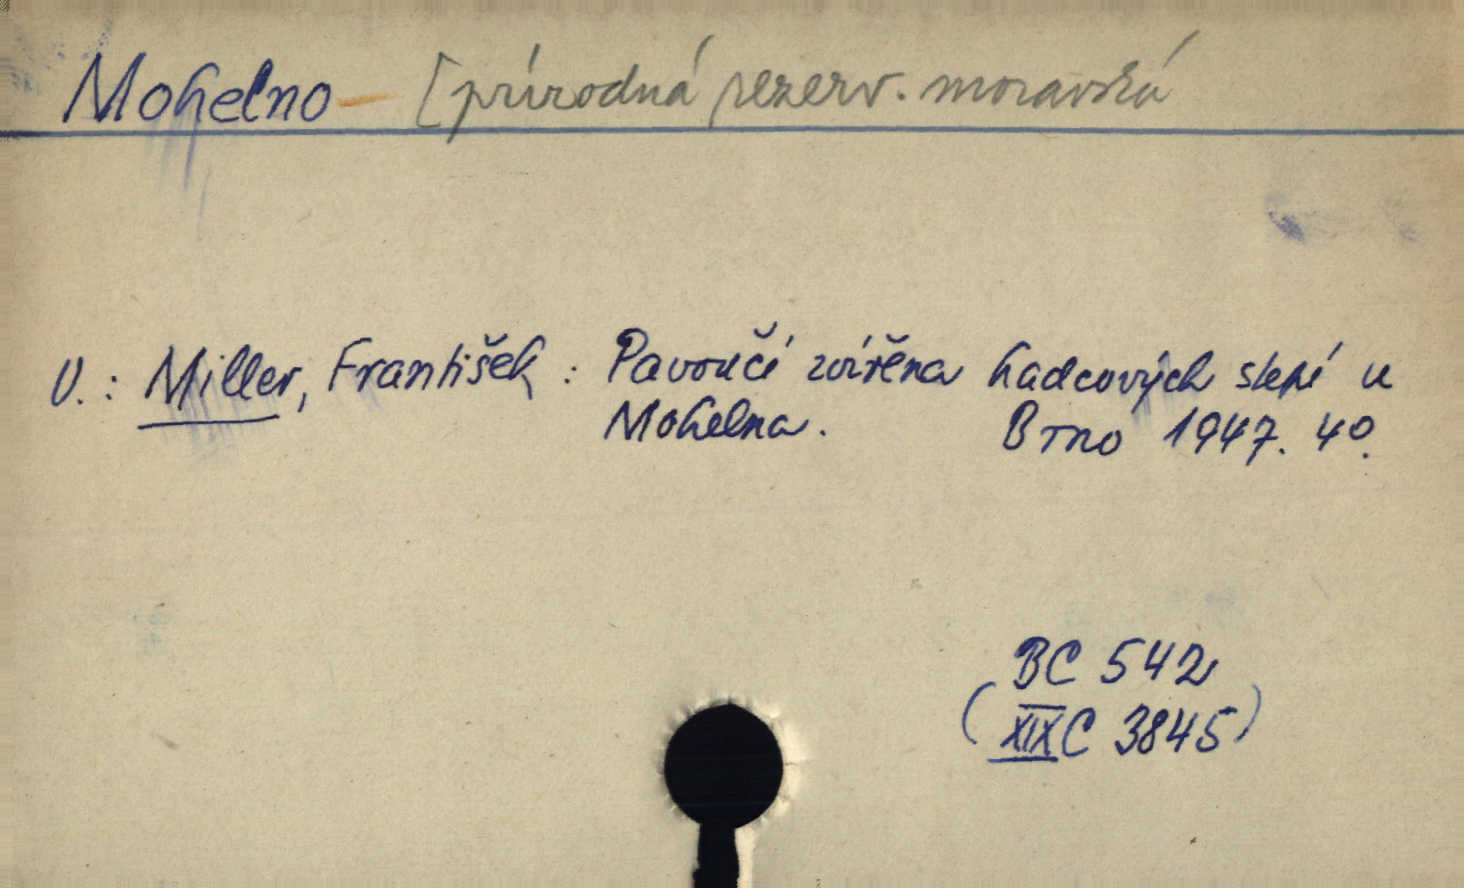 Mohelno - [prírodná rezerv. moravská
V.: Miller, František: Pavoučí zvířena hadcových stepí u
Mohelna. Brno 1947. 4°.
BC 542
(XIX C 3845)